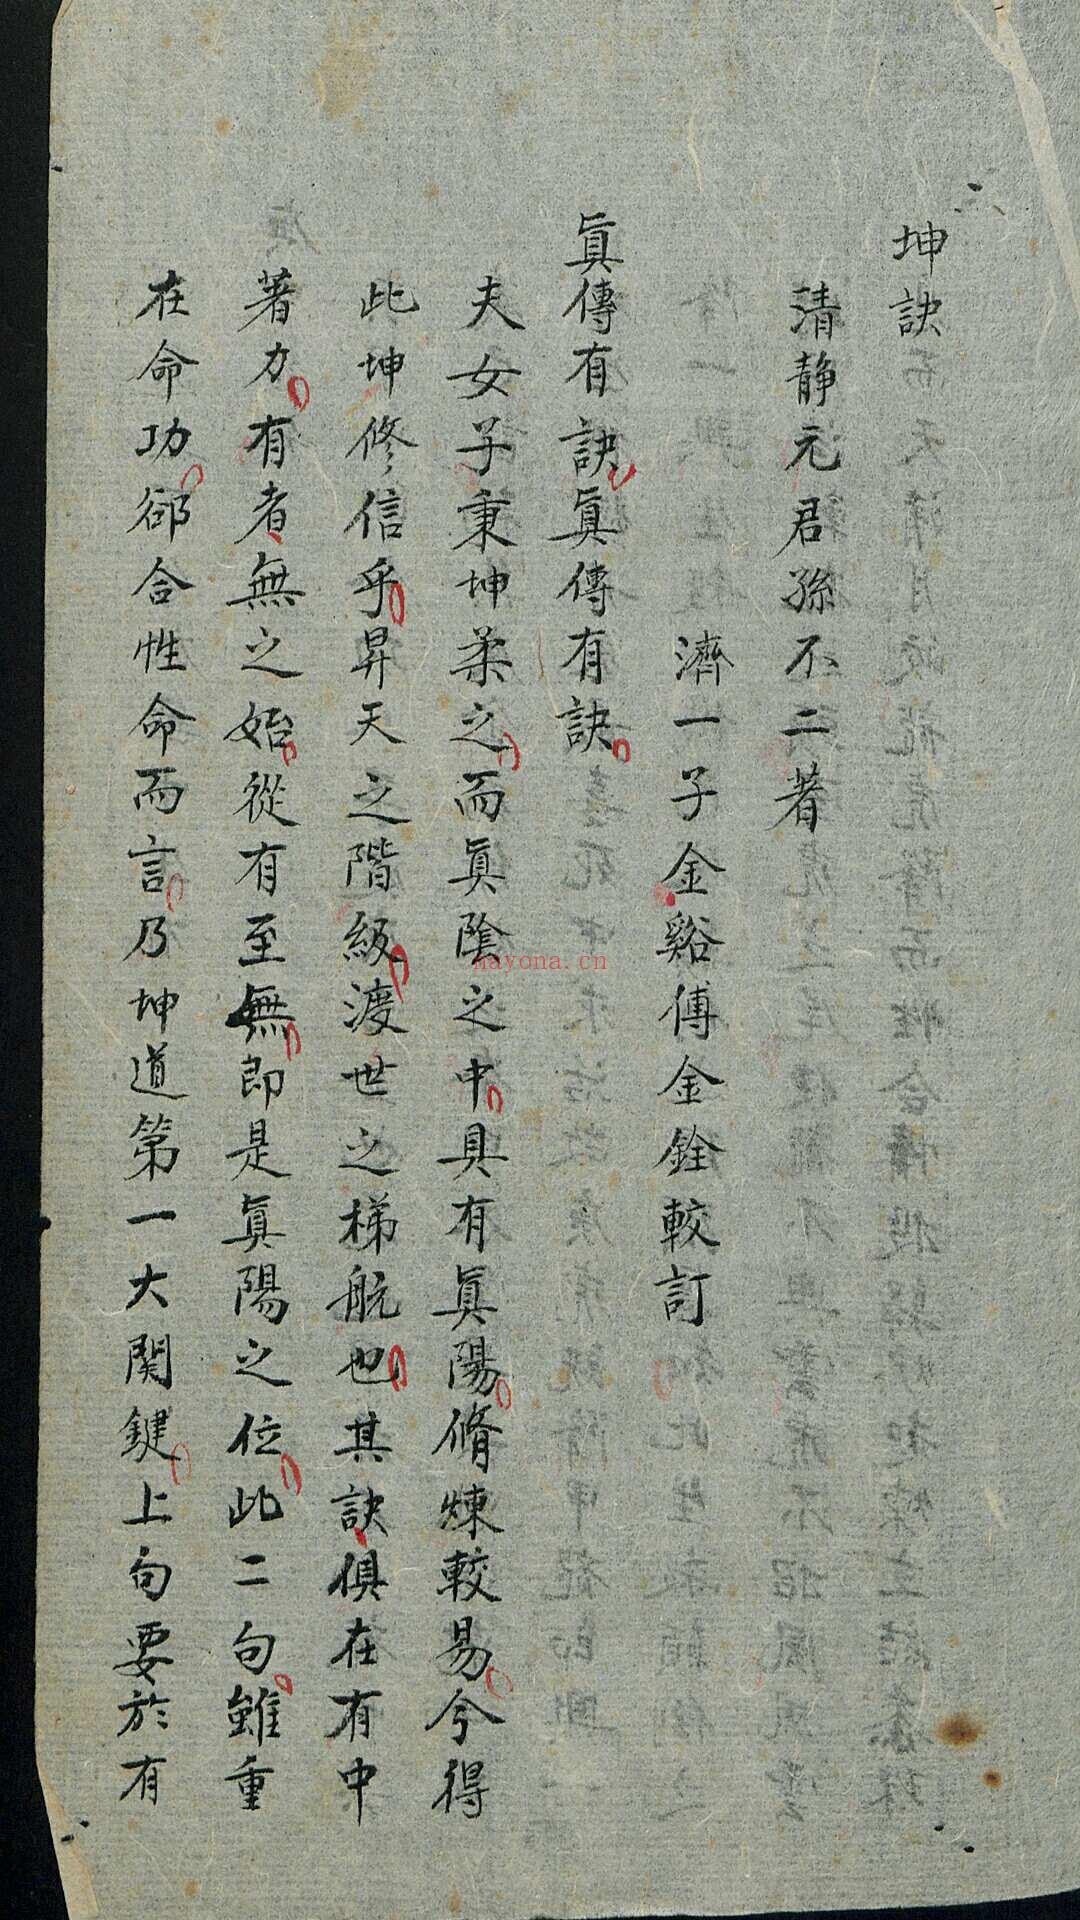 坤訣
清静元君孫不二著
濟一子金谿傅金銓較訂
眞傳有訣眞傳有訣
夫女子秉坤柔之而眞陰之中具有眞陽脩煉較易今得
此坤修信乎昇天之階級渡世之梯航也其訣俱在有中
著力有者無之始從有至無即是眞陽之位此二句雖重
在命功郤合性命而言乃坤道第一大関鍵上句要於有
nayona.cn